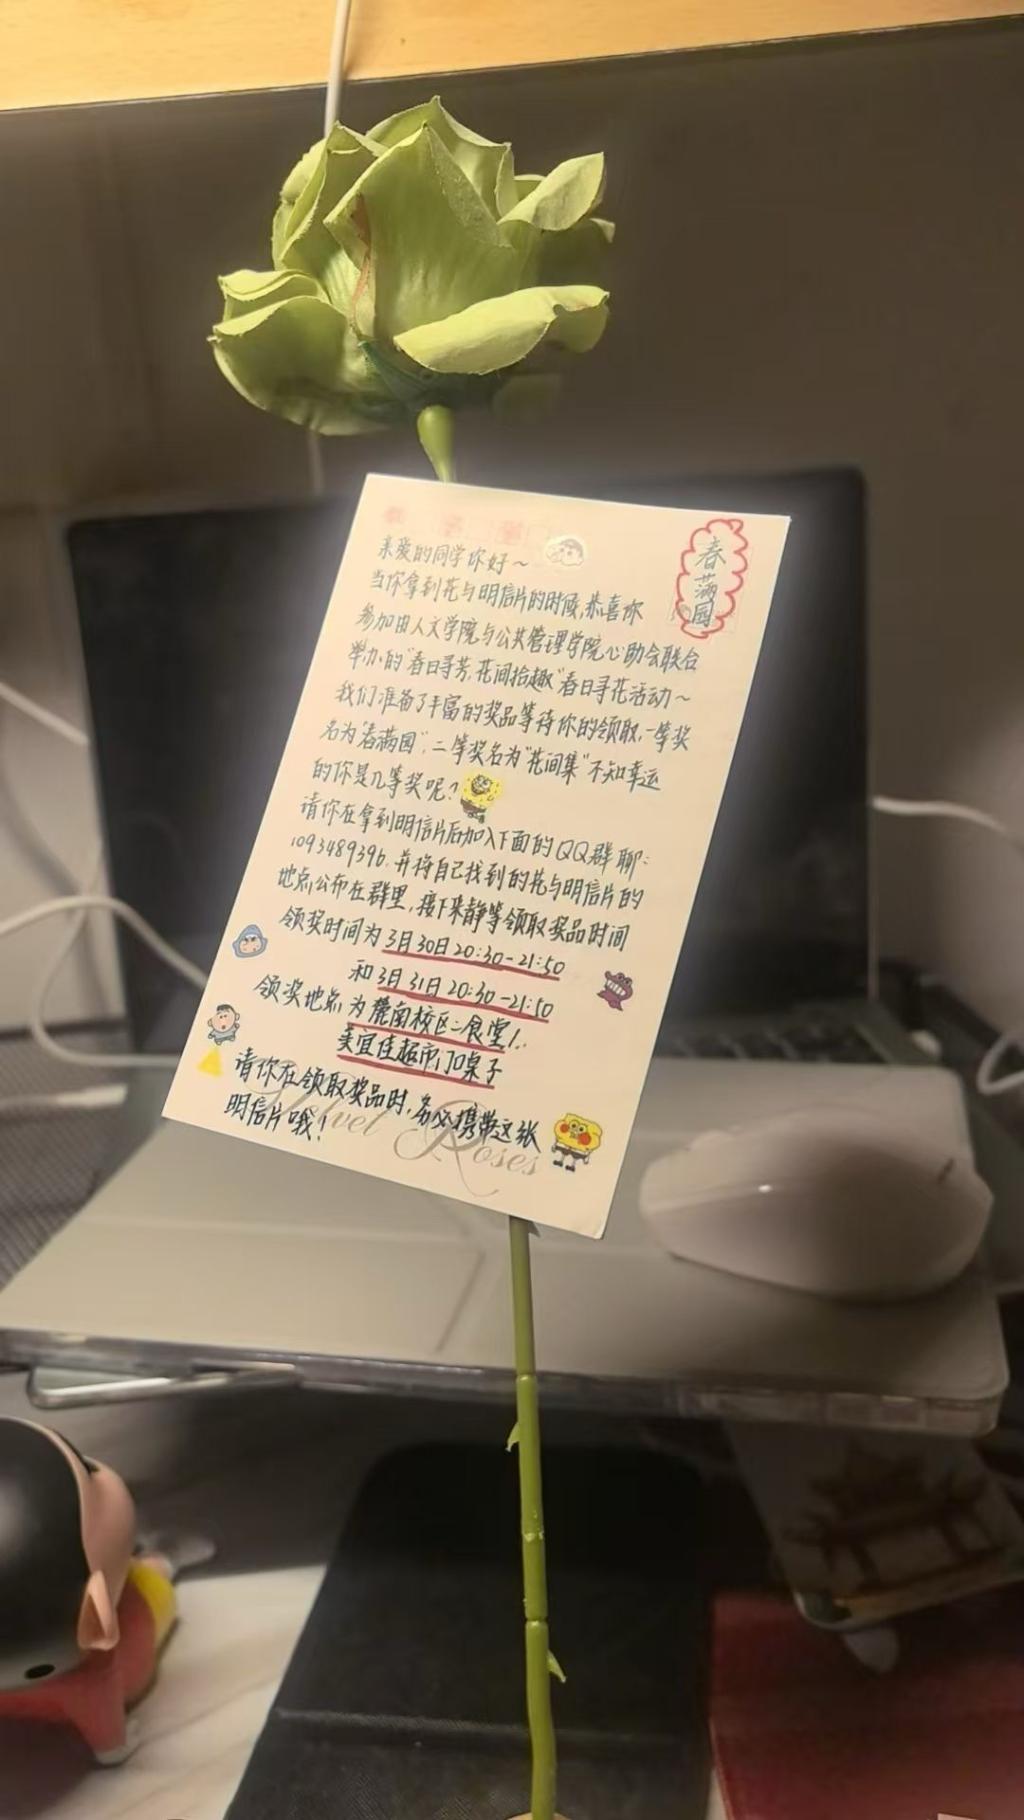 春满园
亲爱的同学你好～
当你拿到花与明信片的时候,恭喜你
参加由人文学院与公共管理学院心助会联合
举办的“春日寻芳,花间拾趣”春日寻花活动～
我们准备了丰富的奖品等待你的领取,一等奖
名为“春满园”,二等奖名为“花间集”不知幸运
的你是几等奖呢?
请你在拿到明信片后加入下面的QQ群聊:
1093489396,并将自己找到的花与明信片的
地点公布在群里,接下来静等领取奖品时间
领奖时间为3月30日20:30-21:50
和3月31日20:30-21:50
领奖地点为麓南校区二食堂1..
美宜佳超市门口桌子
请你在领取奖品时,务必携带这张
明信片哦!
Velvet Roses